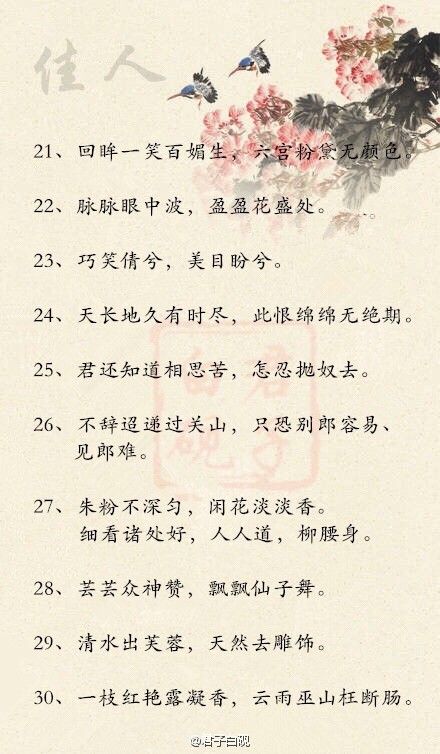 佳人
21、回眸一笑百媚生，六宫粉黛无颜色。
22、脉脉眼中波，盈盈花盛处。
23、巧笑倩兮，美目盼兮。
24、天长地久有时尽，此恨绵绵无绝期。
25、君还知道相思苦，怎忍抛奴去。
26、不辞迢递过关山，只恐别郎容易、
见郎难。
27、朱粉不深匀，闲花淡淡香。
细看诸处好，人人道，柳腰身。
28、芸芸众神赞，飘飘仙子舞。
29、清水出芙蓉，天然去雕饰。
30、一枝红艳露凝香，云雨巫山枉断肠。
君子白砚
@君子白砚